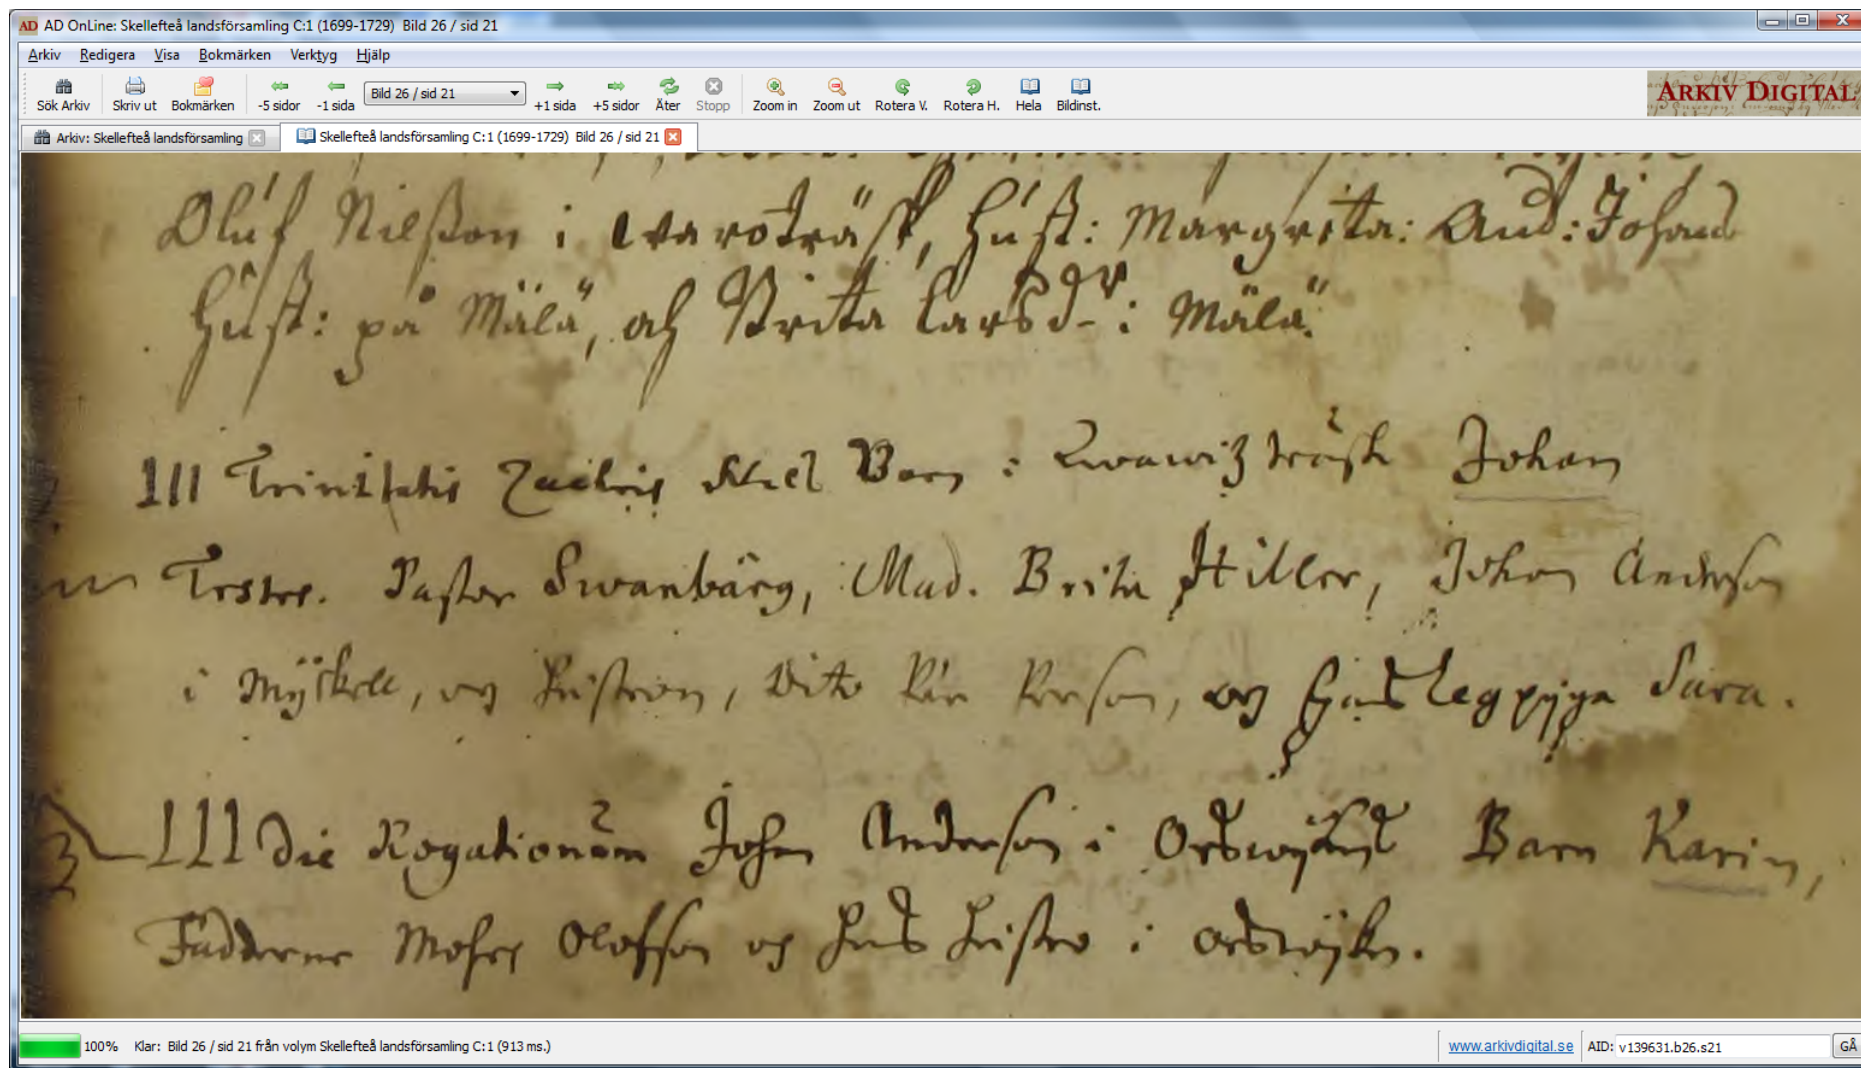 AD OnLine: Skellefteå landsförsamling C:1 (1699-1729) Bild 26 / sid 21
Arkiv Redigera Visa Bokmärken Verktyg Hjälp
Sök Arkiv Skriv ut Bokmärken -5 sidor -1 sida Bild 26 / sid 21 +1 sida +5 sidor Åter Stopp Zoom in Zoom ut Rotera V. Rotera H. Hela Bildinst.
ARKIV DIGITAL
Arkiv: Skellefteå landsförsamling Skellefteå landsförsamling C:1 (1699-1729) Bild 26 / sid 21
Oluf Nilsson i hust: Margreta: And: Johans
hust: på Mälä, och Brita Larsdr i Mälä.
III Trinitatis Barn i Johan
Testes. Pastor Swanbärg, Mad. Brita Stiller, Johan Anderson
i och hustron, Dito Pär Person, och hans legpiga Sara.
III die Rogationum Johan Anderson i Barn Karin,
Faddrene Olofsson och hans hustro i
100% Klar: Bild 26 / sid 21 från volym Skellefteå landsförsamling C:1 (913 ms.)
www.arkivdigital.se AID: v139631.b26.s21 GÅ